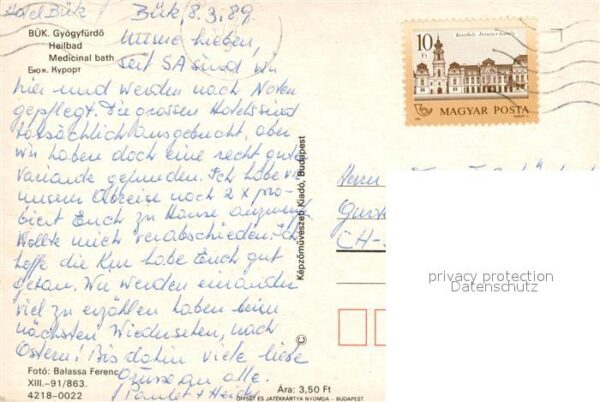 Hotel Bük
Bük, 8.3.89.
BÜK. Gyógyfürdő
Heilbad
Medicinal bath
Бюк. Курорт
Meine Lieben,
seit SA sind wir
hier und werden nach Noten
gepflegt. Die grossen Hotels sind
tatsächlich ausgebucht, aber
wir haben doch eine recht gute
Variante gefunden. Ich habe vor
unserer Abreise noch 2 x pro-
biert Euch zu Hause anzurufen.
Wollte mich verabschieden. Ich
hoffe die Kur habe Euch gut
getan. Wir werden einander
viel zu erzählen haben beim
nächsten Wiedersehen, nach
Ostern! Bis dahin viele liebe
Grüsse an alle.
Paulet + Heidi
Fotó: Balassa Ferenc
XIII.–91/863.
4218-0022
Ára: 3,50 Ft
OFFSET ÉS JÁTÉKKÁRTYA NYOMDA - BUDAPEST
© Képzőművészeti Kiadó, Budapest
Keszthely, Festetics-Kastély
10 Ft
MAGYAR POSTA
Herrn
CH-
privacy protection
Datenschutz